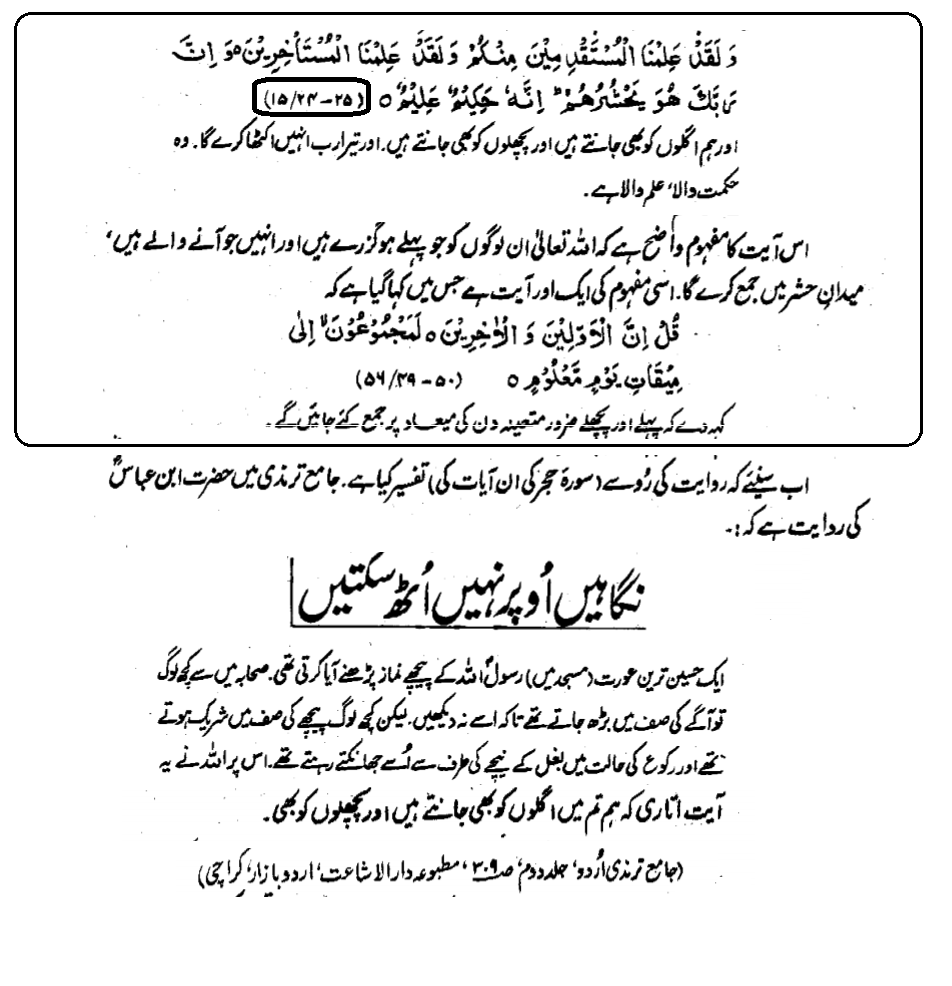 وَ لَقَدْ عَلِمْنَا الْمُسْتَقْدِمِيْنَ مِنْكُمْ وَ لَقَدْ عَلِمْنَا الْمُسْتَاْخِرِيْنَ ○ وَ اِنَّ
رَبَّكَ هُوَ يَحْشُرُهُمْ ؕ اِنَّهٗ حَكِيْمٌ عَلِيْمٌ ○ (۱۵/۲۴-۲۵)
اور ہم اگلوں کو بھی جانتے ہیں اور پچھلوں کو بھی جانتے ہیں۔ اور تیرا رب انہیں اکٹھا کرے گا۔ وہ
حکمت والا‘ علم والا ہے۔
اس آیت کا مفہوم واضح ہے کہ اللہ تعالیٰ ان لوگوں کو جو پہلے ہو گزرے ہیں اور انہیں جو آنے والے ہیں‘
میدانِ حشر میں جمع کرے گا۔ اسی مفہوم کی ایک اور آیت ہے جس میں کہا گیا ہے کہ
قُلْ اِنَّ الْاَوَّلِيْنَ وَ الْاٰخِرِيْنَ ○ لَمَجْمُوْعُوْنَ ۙ اِلٰى
مِيْقَاتِ يَوْمٍ مَّعْلُوْمٍ ○ (۵۶/۴۹-۵۰)
کہہ دے کہ پہلے اور پچھلے ضرور متعینہ دن کی میعاد پر جمع کئے جائیں گے۔
اب سنیئے کہ روایت کی رُو سے (سورۂ حجر کی ان آیات کی) تفسیر کیا ہے۔ جامع ترمذی میں حضرت ابن عباسؓ
کی روایت ہے کہ:۔
نگاہیں اُوپر نہیں اُٹھ سکتیں
ایک حسین ترین عورت (مسجد میں) رسولؐ اللہ کے پیچھے نماز پڑھنے آیا کرتی تھی۔ صحابہ میں سے کچھ لوگ
تو آگے کی صف میں بڑھ جاتے تھے تاکہ اسے نہ دیکھیں۔ لیکن کچھ لوگ پیچھے کی صف میں شریک ہوتے
تھے اور رکوع کی حالت میں بغل کے نیچے کی طرف سے اُسے جھانکتے رہتے تھے۔ اس پر اللہ نے یہ
آیت اتاری کہ ہم تم میں اگلوں کو بھی جانتے ہیں اور پچھلوں کو بھی۔
(جامع ترمذی اُردو‘ جلد دوم‘ صـ ۳۰۹‘ مطبوعہ دار الاشاعت‘ اردو بازار‘ کراچی)